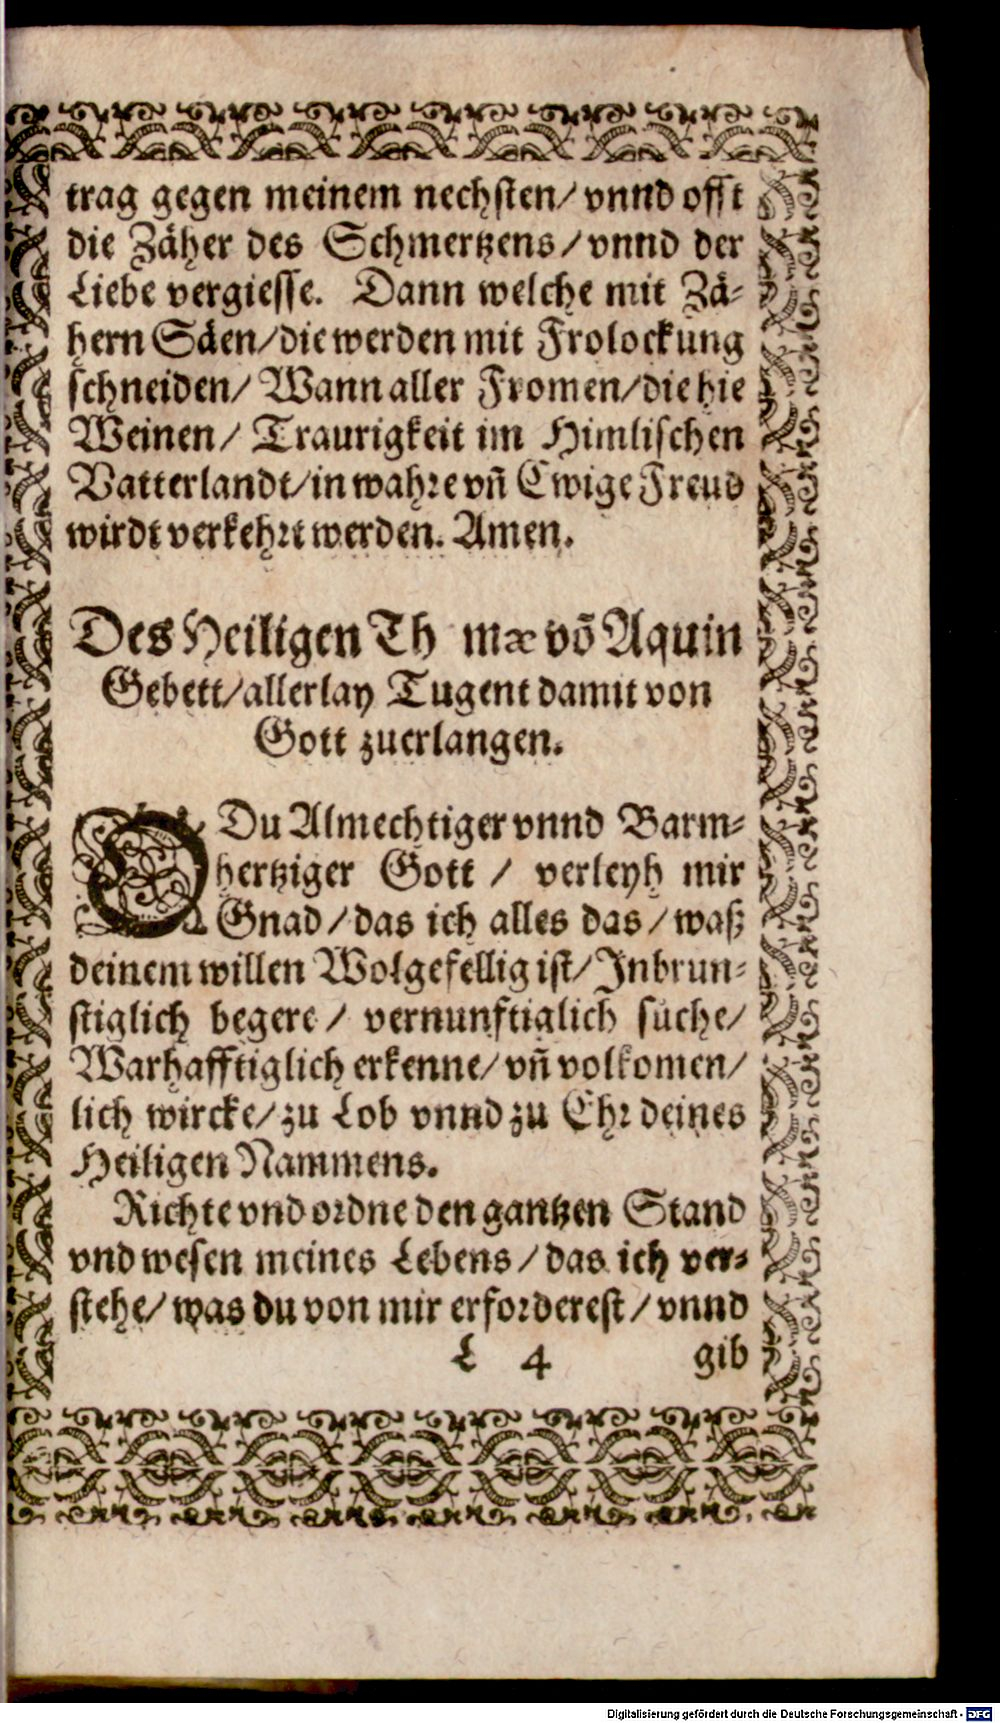 trag gegen meinem nechsten/ vnnd offt
die Zäher des Schmertzens/ vnnd der
Liebe vergiesse. Dann welche mit Zä-
hern Säen/ die werden mit Frolockung
schneiden/ Wann aller Fromen/ die hie
Weinen/ Traurigkeit im Himlischen
Vatterlandt/ in wahre vñ Ewige Freud
wirdt verkehrt werden. Amen.
Des Heiligen Th mæ võ Aquin
Gebett/ allerlay Tugent damit von
Gott zuerlangen.
O Du Almechtiger vnnd Barm-
hertziger Gott / verleyh mir
Gnad / das ich alles das / waß
deinem willen Wolgefellig ist/ Inbrun-
stiglich begere / vernunftiglich suche/
Warhafftiglich erkenne/ vñ volkomen/
lich wircke/ zu Lob vnnd zu Ehr deines
Heiligen Nammens.
Richte vnd ordne den gantzen Stand
vnd wesen meines Lebens / das ich ver-
stehe/ was du von mir erforderest / vnnd
L 4 gib
Digitalisierung gefördert durch die Deutsche Forschungsgemeinschaft - DFG